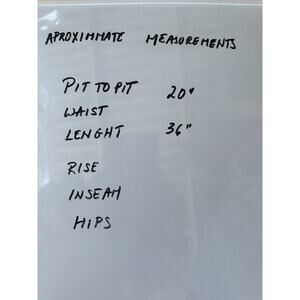 APROXIMMATE MEASUREMENTS
PIT TO PIT 20"
WAIST
LENGHT 36"
RISE
INSEAM
HIPS